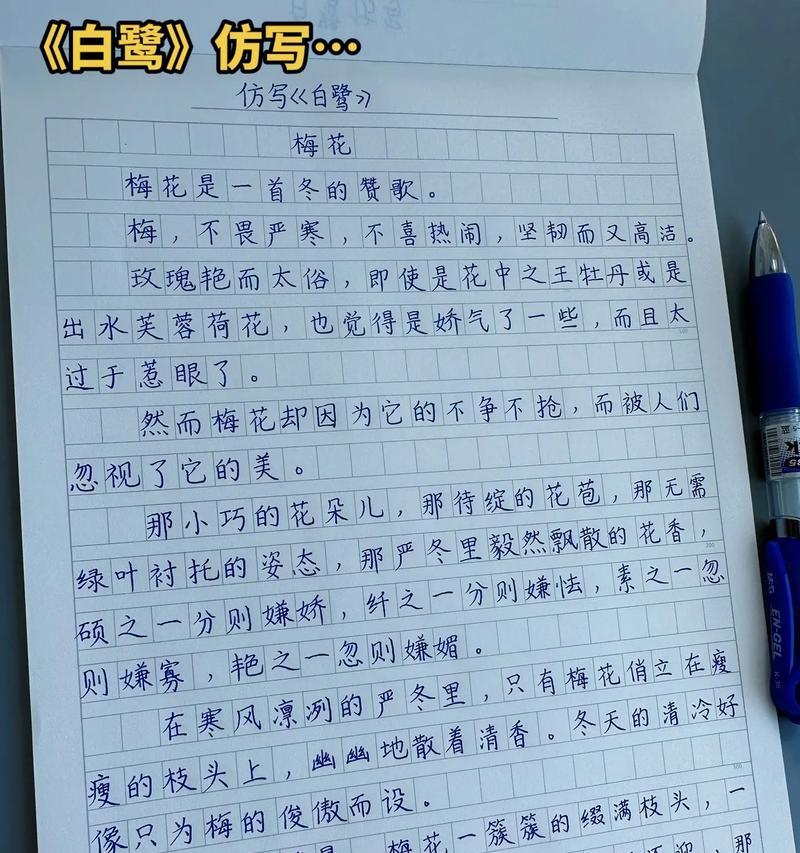 《白鹭》仿写…
仿写《白鹭》
梅花
梅花是一首冬的赞歌。
梅，不畏严寒，不喜热闹，坚韧而又高洁。
玫瑰艳而太俗，即使是花中之王牡丹或是
出水芙蓉荷花，也觉得是娇气了一些，而且太
过于惹眼了。
然而梅花却因为它的不争不抢，而被人们
忽视了它的美。
那小巧的花朵儿，那待绽的花苞，那无需
绿叶衬托的姿态，那严冬里毅然飘散的花香，
硕之一分则嫌娇，纤之一分则嫌怯，素之一忽
则嫌寡，艳之一忽则嫌媚。
在寒风凛冽的严冬里，只有梅花俏立在瘦
瘦的枝头上，幽幽地散着清香。冬天的清冷好
像只为梅的俊傲而设。
梅花一簇簇的缀满枝头，一
那
EN-GEL